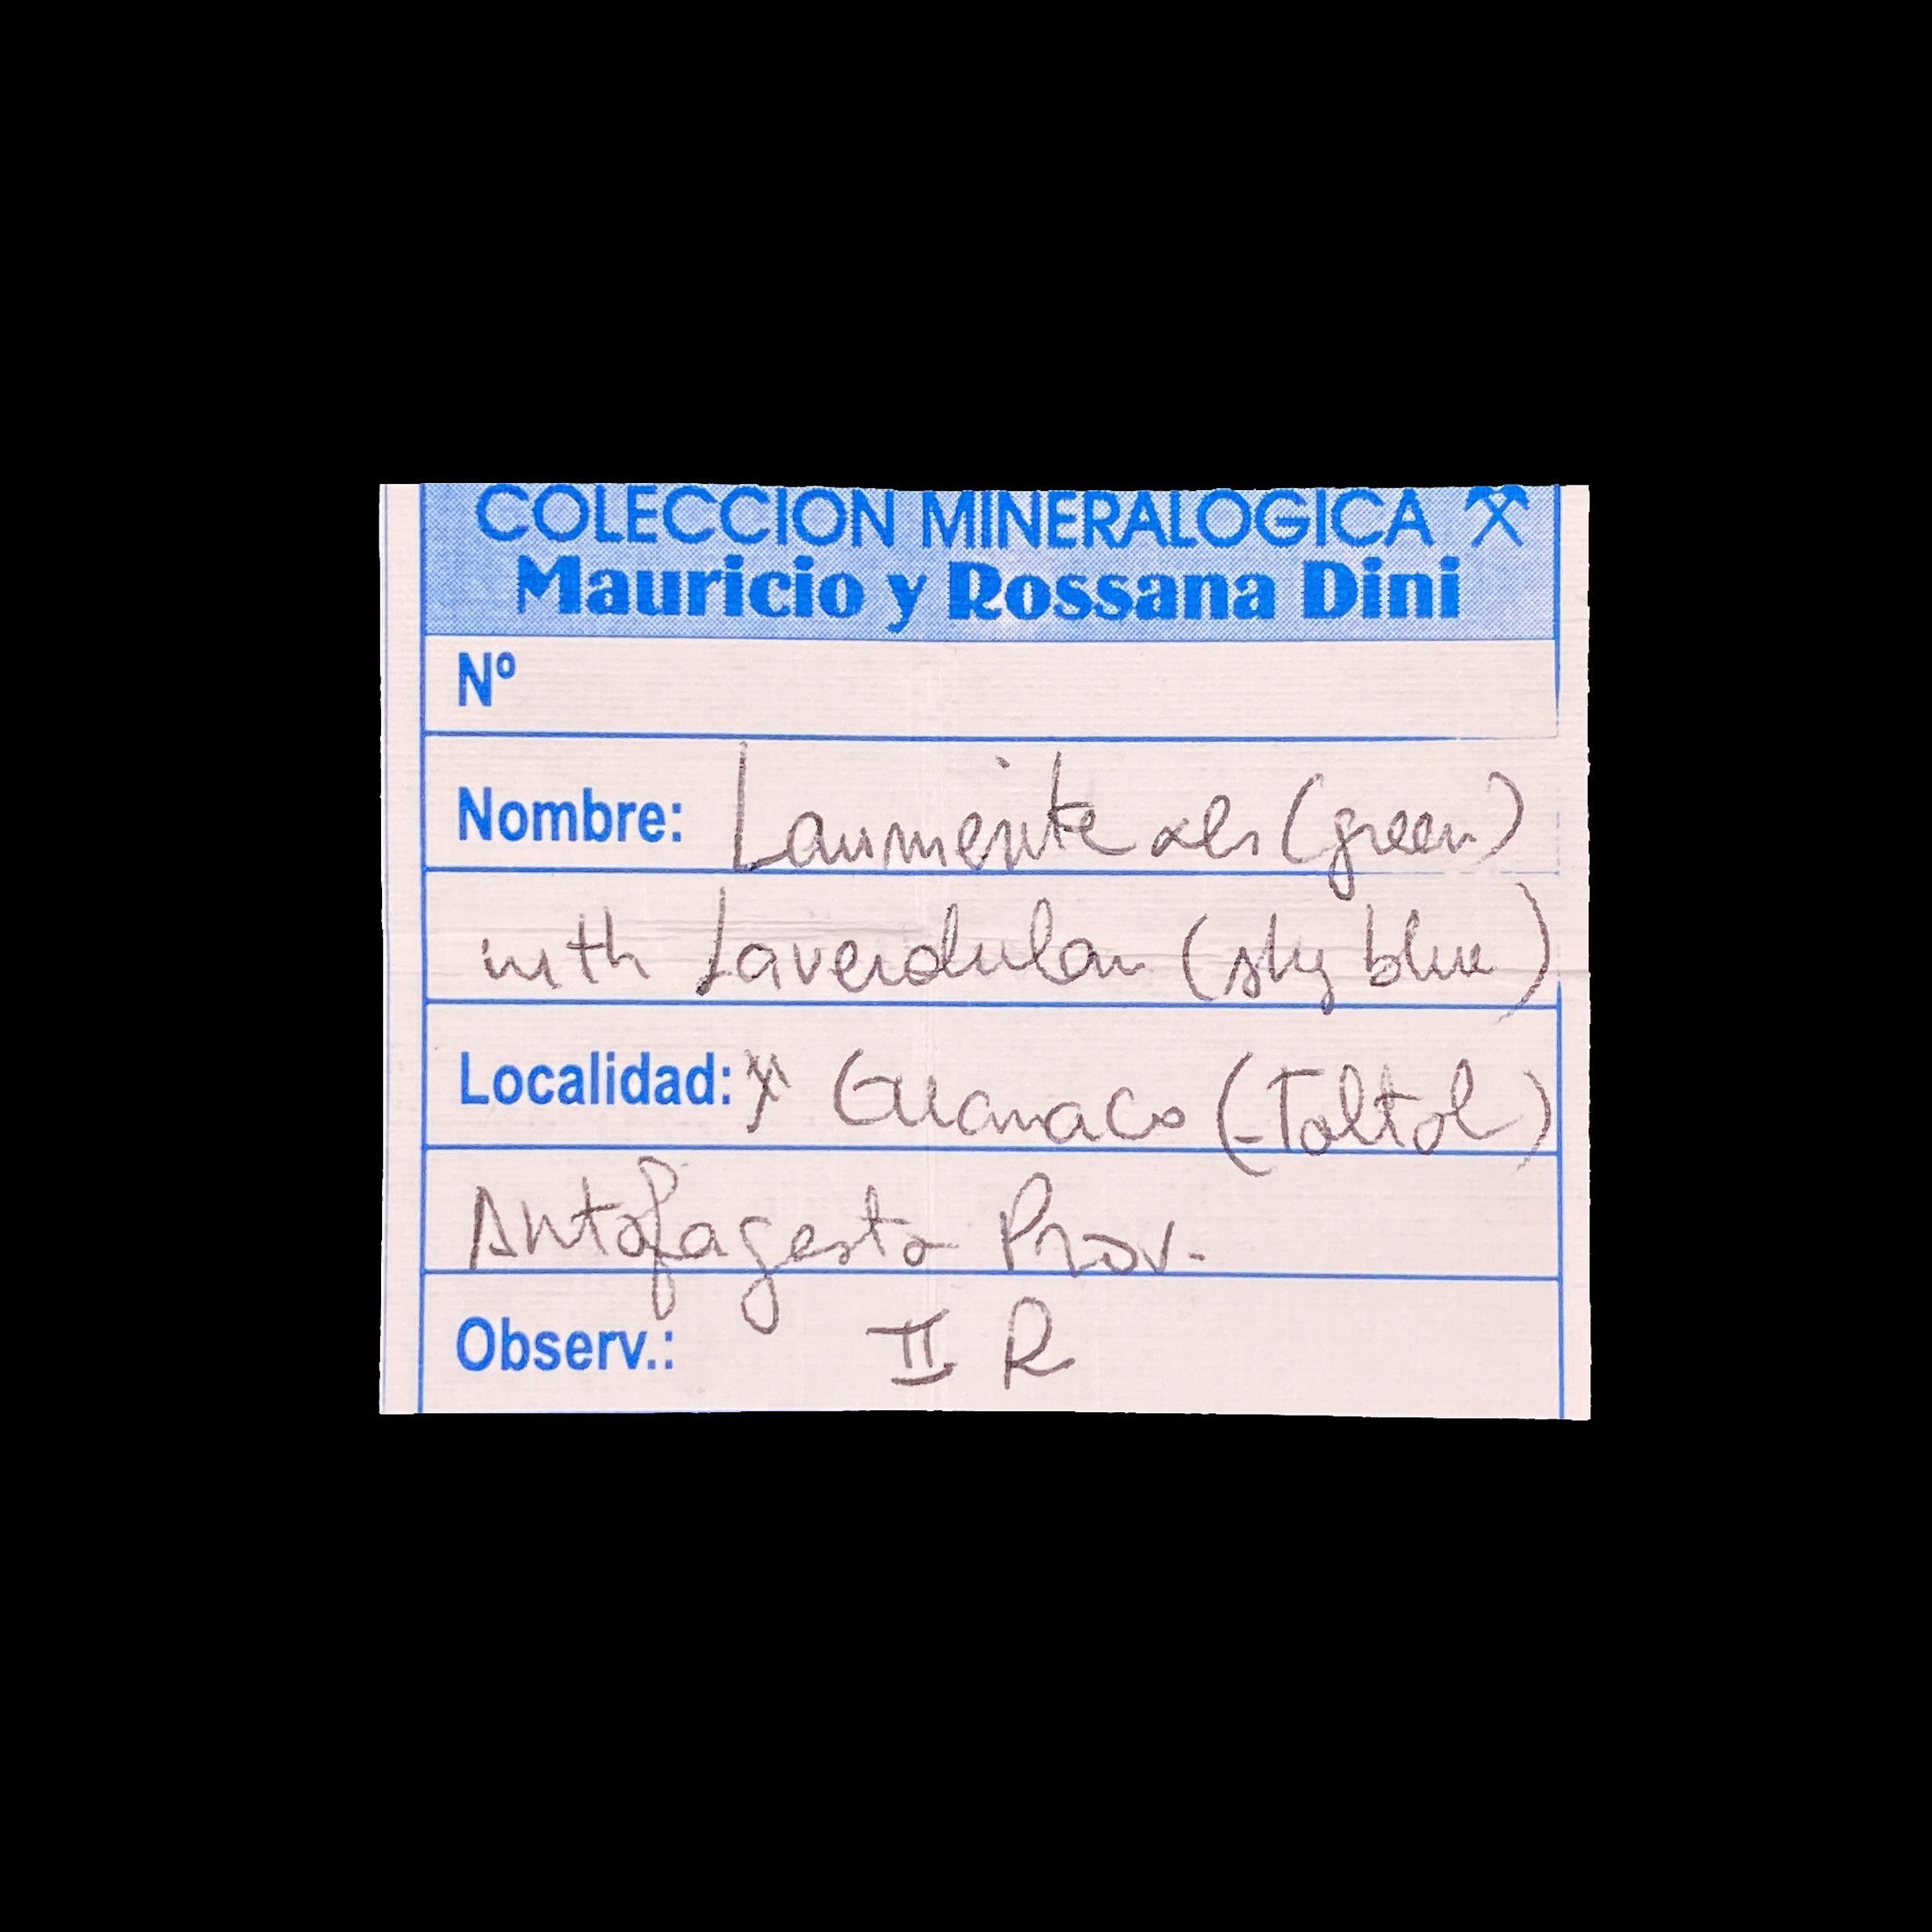 COLECCION MINERALOGICA
Mauricio y Rossana Dini
Nº
Nombre: Lammerite xls (green)
with Lavendulan (sky blue)
Localidad: Guanaco (Taltal)
Antofagasta Prov.
Observ.: II R